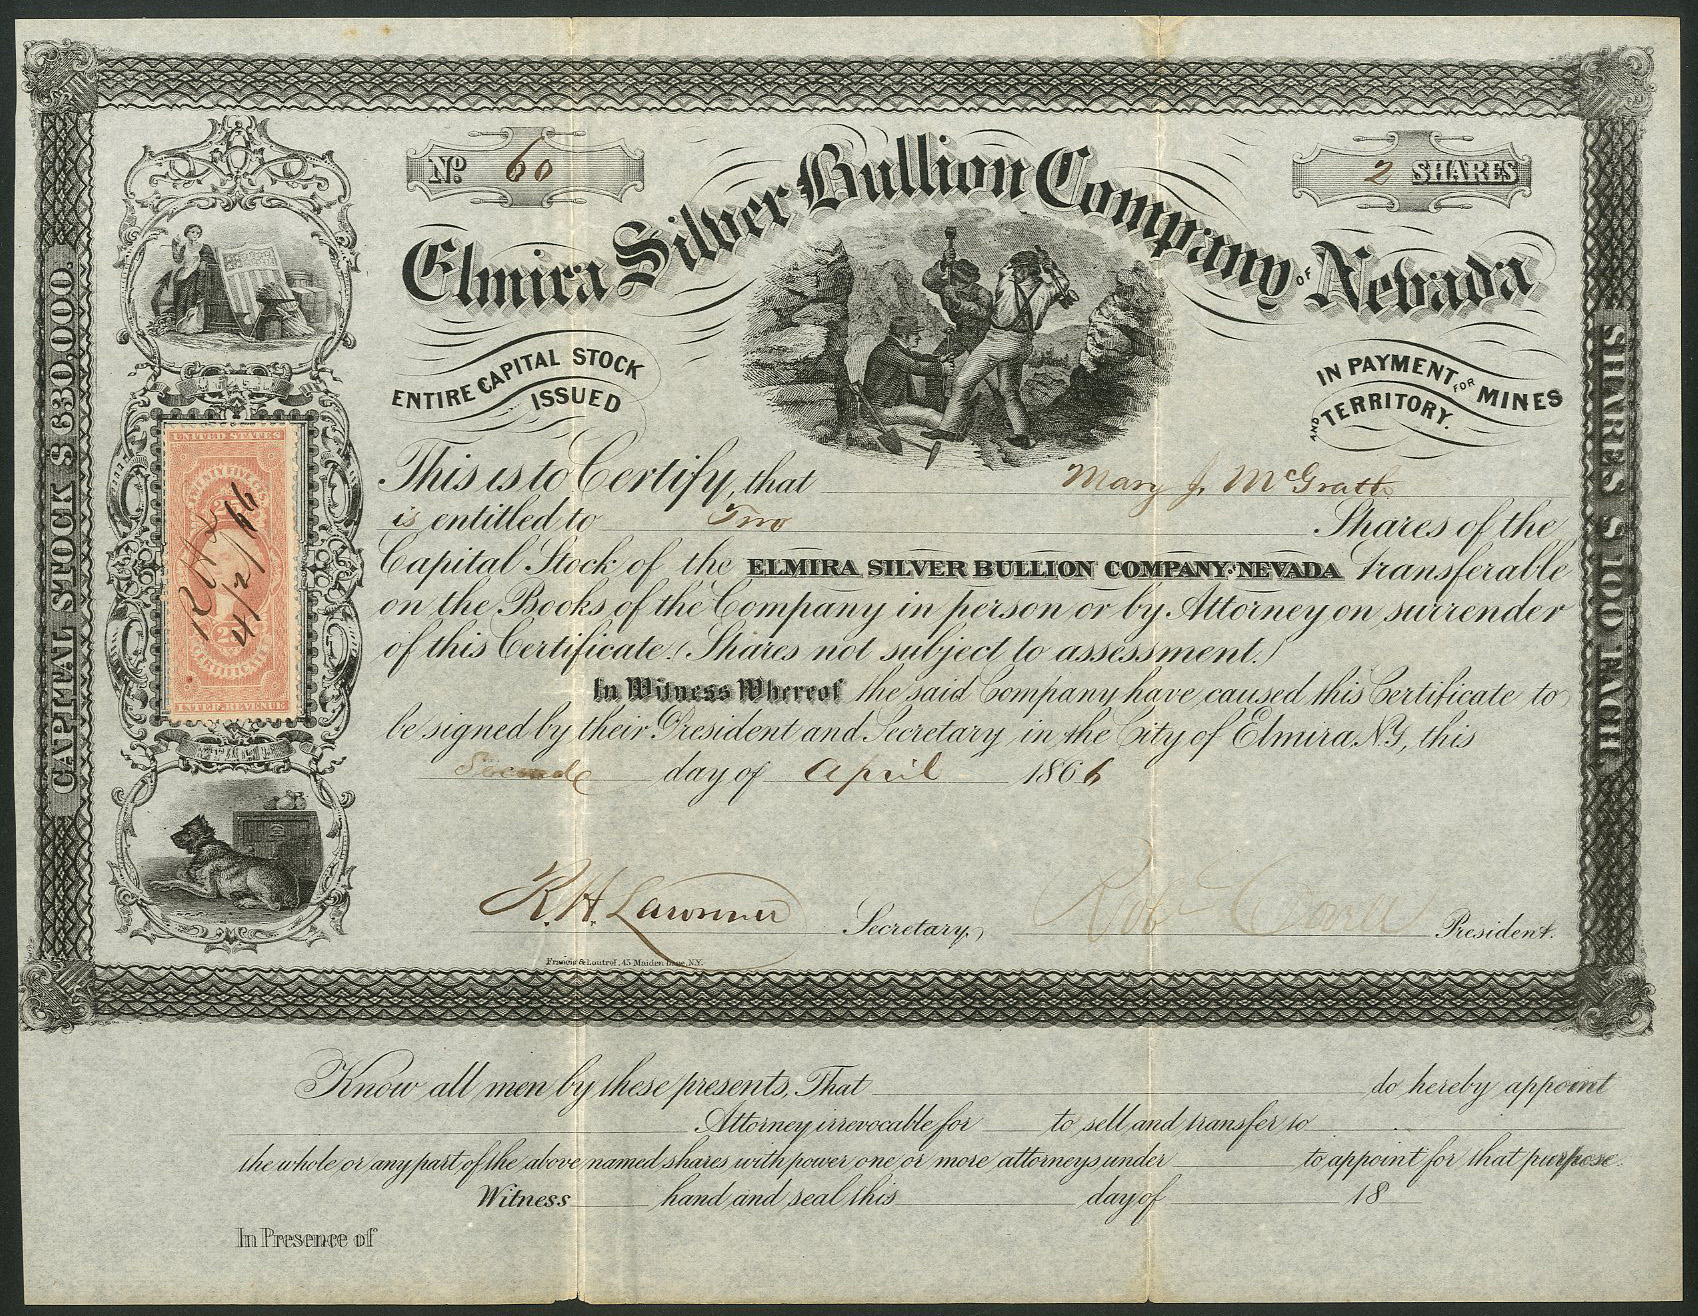 No. 60
2 SHARES
Elmira Silver Bullion Company OF Nevada
ENTIRE CAPITAL STOCK
ISSUED
IN PAYMENT FOR MINES
AND TERRITORY.
This is to Certify, that Mary J. McGrath
is entitled to Two Shares of the
Capital Stock of the ELMIRA SILVER BULLION COMPANY OF NEVADA transferable
on the Books of the Company in person or by Attorney on surrender
of this Certificate. (Shares not subject to assessment.)
In Witness Whereof the said Company have caused this Certificate to
be signed by their President and Secretary in the City of Elmira, N.Y, this
Second day of April 1866
R. H. Secretary,
President.
Francis & Loutrel, 45 Maiden Lane, N.Y.
CAPITAL STOCK $ 830,000.
SHARES $ 100 EACH.
UNITED STATES
TWENTY FIVE CTS.
25
R H L
4/2/66
25
CERTIFICATE
INTER. REVENUE
Know all men by these presents, That do hereby appoint
Attorney irrevocable for to sell and transfer to
the whole or any part of the above named shares with power one or more attorneys under to appoint for that purpose.
Witness hand and seal this day of 18
In Presence of